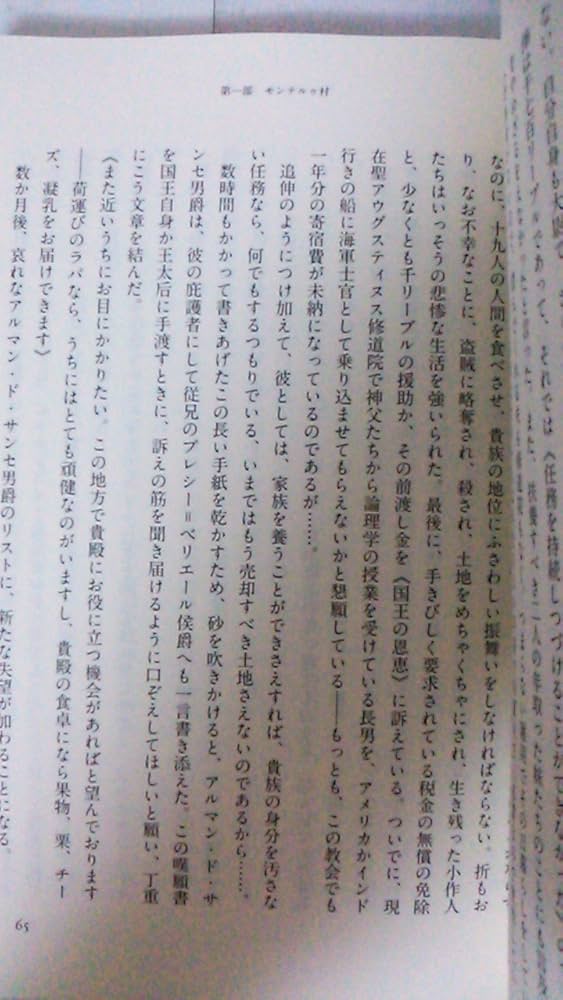 第一部　モンテルゥ村
なのに、十九人の人間を食べさせ、貴族の地位にふさわしい振舞いをしなければならない。折もお
り、なお不幸なことに、盗賊に略奪され、殺され、土地をめちゃくちゃにされ、生き残った小作人
たちはいっそうの悲惨な生活を強いられた。最後に、手きびしく要求されている税金の無償の免除
と、少なくとも千リーブルの援助か、その前渡し金を《国王の恩恵》に訴えている。ついでに、現
在聖アウグスティヌス修道院で神父たちから論理学の授業を受けている長男を、アメリカかインド
行きの船に海軍士官として乗り込ませてもらえないかと懇願している――もっとも、この教会でも
一年分の寄宿費が未納になっているのであるが……。
追伸のようにつけ加えて、彼としては、家族を養うことができさえすれば、貴族の身分を汚さな
い任務なら、何でもするつもりでいる、いまではもう売却すべき土地さえないのであるから……。
数時間もかかって書きあげたこの長い手紙を乾かすため、砂を吹きかけると、アルマン・ド・サ
ンセ男爵は、彼の庇護者にして従兄のプレシー＝ベリエール侯爵へも一言書き添えた。この嘆願書
を国王自身か王太后に手渡すときに、訴えの筋を聞き届けるように口ぞえしてほしいと願い、丁重
にこう文章を結んだ。
《また近いうちにお目にかかりたい。この地方で貴殿にお役に立つ機会があればと望んでおります
――荷運びのラバなら、うちにはとても頑健なのがいますし、貴殿の食卓になら果物、栗、チー
ズ、凝乳をお届けできます》
数か月後、哀れなアルマン・ド・サンセ男爵のリストに、新たな失望が加わることになる。
65